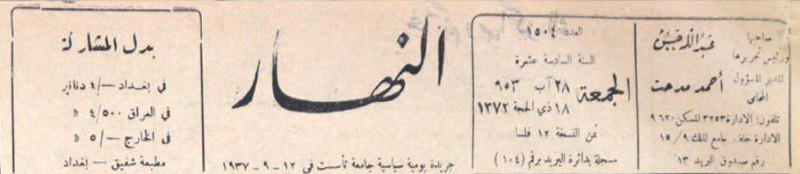 صاحبها
ورئيس تحريرها
المدير المسؤول
احمد مدحت
المحامي
تلفون: الادارة ٣٢٥٣ المسكن ٩٦٢٠
الادارة خلف جامع الملك ١٥/٩
رقم صندوق البريد ١٣
العدد: ١٥٠٤
السنة السادسة عشرة
الجمعة
٢٨ آب ٩٥٣
١٨ ذي الحجة ١٣٧٢
ثمن النسخة ١٢ فلسا
مسجلة بدائرة البريد برقم (١٠٤)
النهار
جريدة يومية سياسية جامعة تأسست في ١٢-٩-١٩٣٧
بدل المشاركة
في بغداد -/٤ دنانير
في العراق ٤/٥٠٠ »
في الخارج -/٥ »
مطبعة شفيق - بغداد